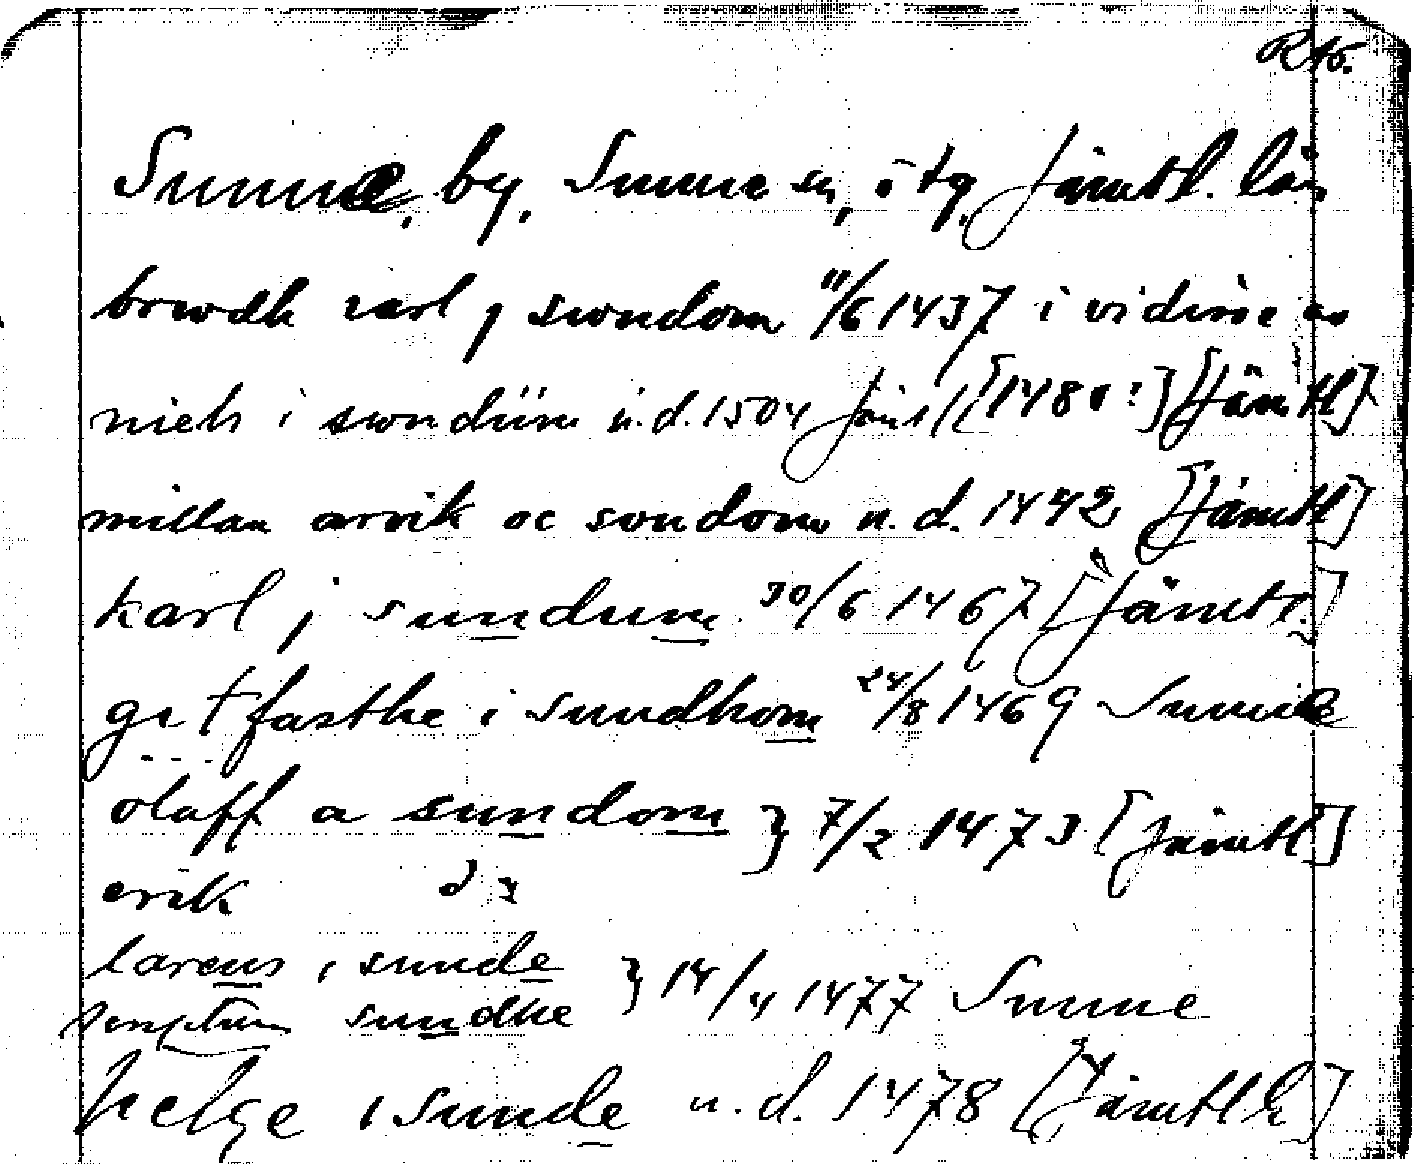 RAö.
Sunne, by, Sunne sn, ö tg, Jämtl. län
brwdh karl j swndom 11/6 1437 i vidisse av
niels i swndüm u.d. 1504 Jämtl [1480?] [Jämtl]
millan arvik oc sondom u.d. 1442 [Jämtl]
karl j sundum 30/6 1467 [Jämtl.]
gutfasthe i sundhom 24/8 1469 Sunne
olaff a sundom } 7/2 1473 [Jämtl]
erik d:
larens i sunde } 14/4 1477 Sunne
scriptum sundhe
helge i sunde u.d. 1478 [Jämtl]